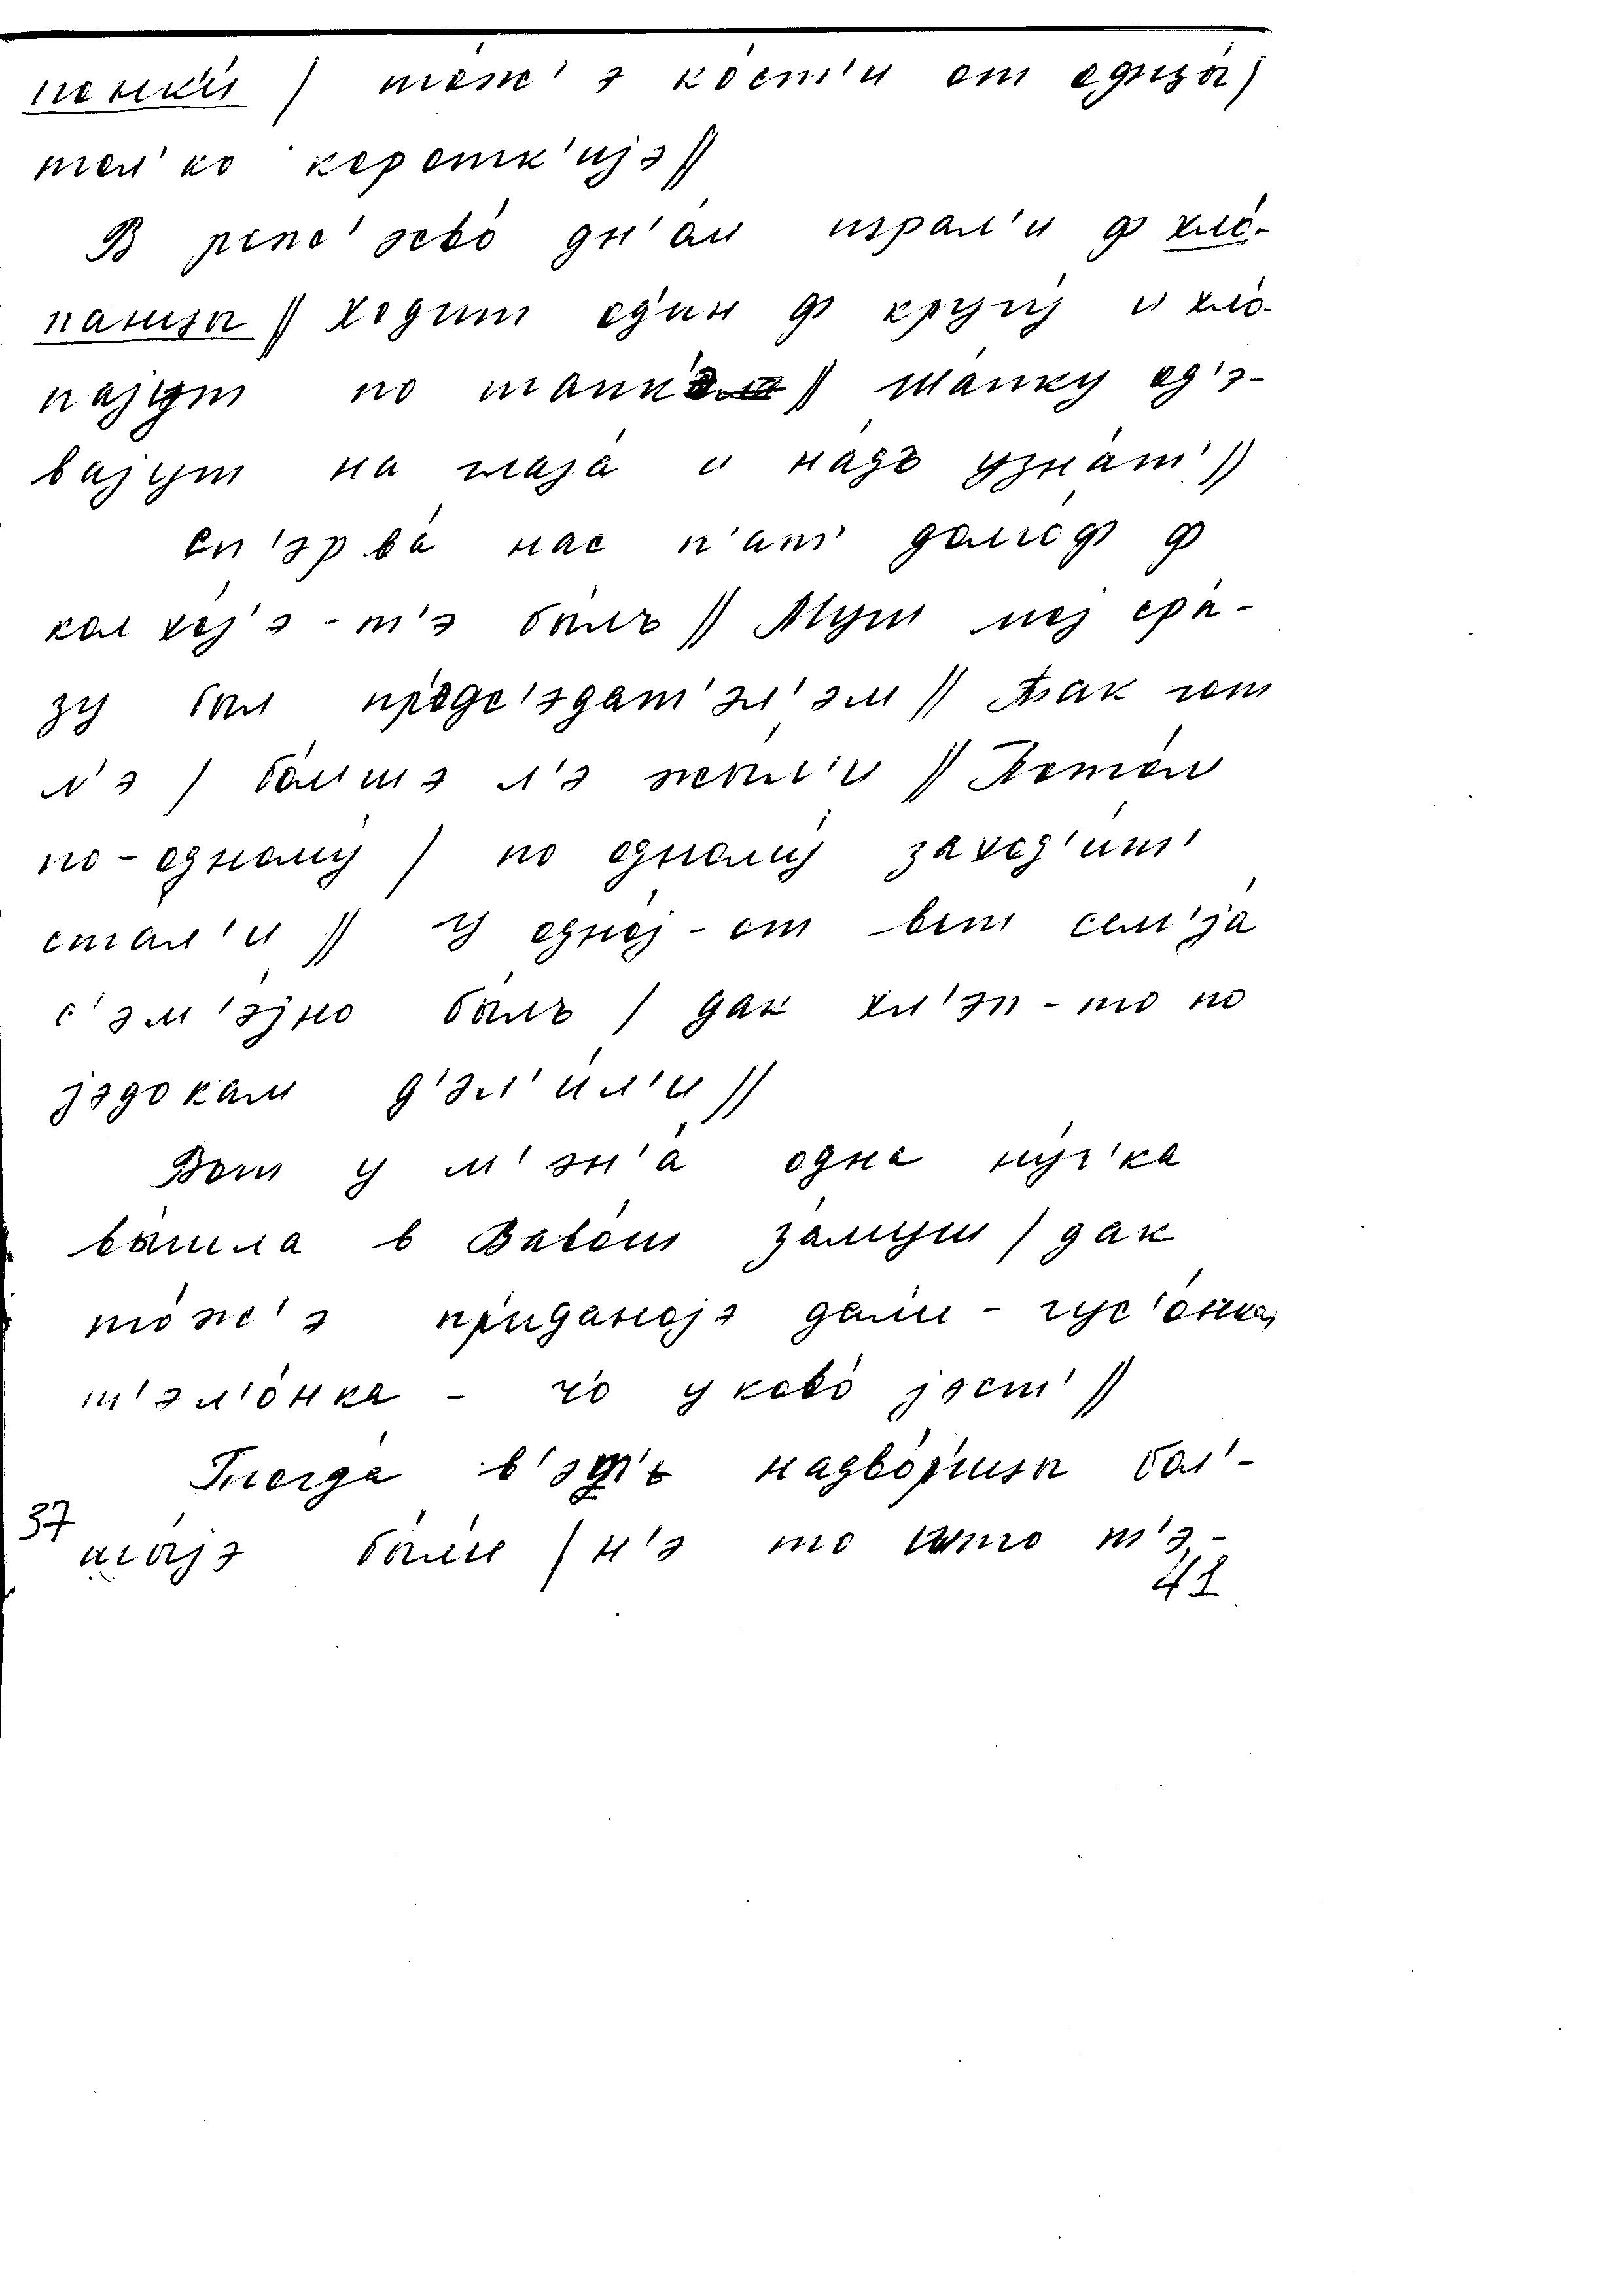 тож'э кост'и от
тол'ко коротк'ијэ //
В дн'ом играл'и ф хло-
// ходит од'ин ф кругу́ и хло-
пајут по шапк // ша́пку од'э-
вајут на и на́дъ узна́т' //
Сп'эрва́ нас п'ат' домо́ф ф
колхоз'э-т'э бы́лъ // Муш мој сра́-
зу был пр'эдс'эдат'эл'эм // Так год
л'э / бо́лшэ л'э жы́л'и // Пото́м
по-одному́ / по одному́ заход'и́т'
стал'и // У одној-от вот сем'ја́
с'эм'э́јно былъ / дак хл'эп-то по
јэдокам д'эл'и́л'и //
Вот у м'эн'а́ одна ну́ч'ка
вы́шла в за́муш / дак
то́ж'э пр'иданојэ дал'и - гус'о́нка,
т'эл'о́нка - чо́ у ково́ јэст' //
Тногда́ надво́рницы бол'-
шы́јэ были / н'э то што т'э-
37
42